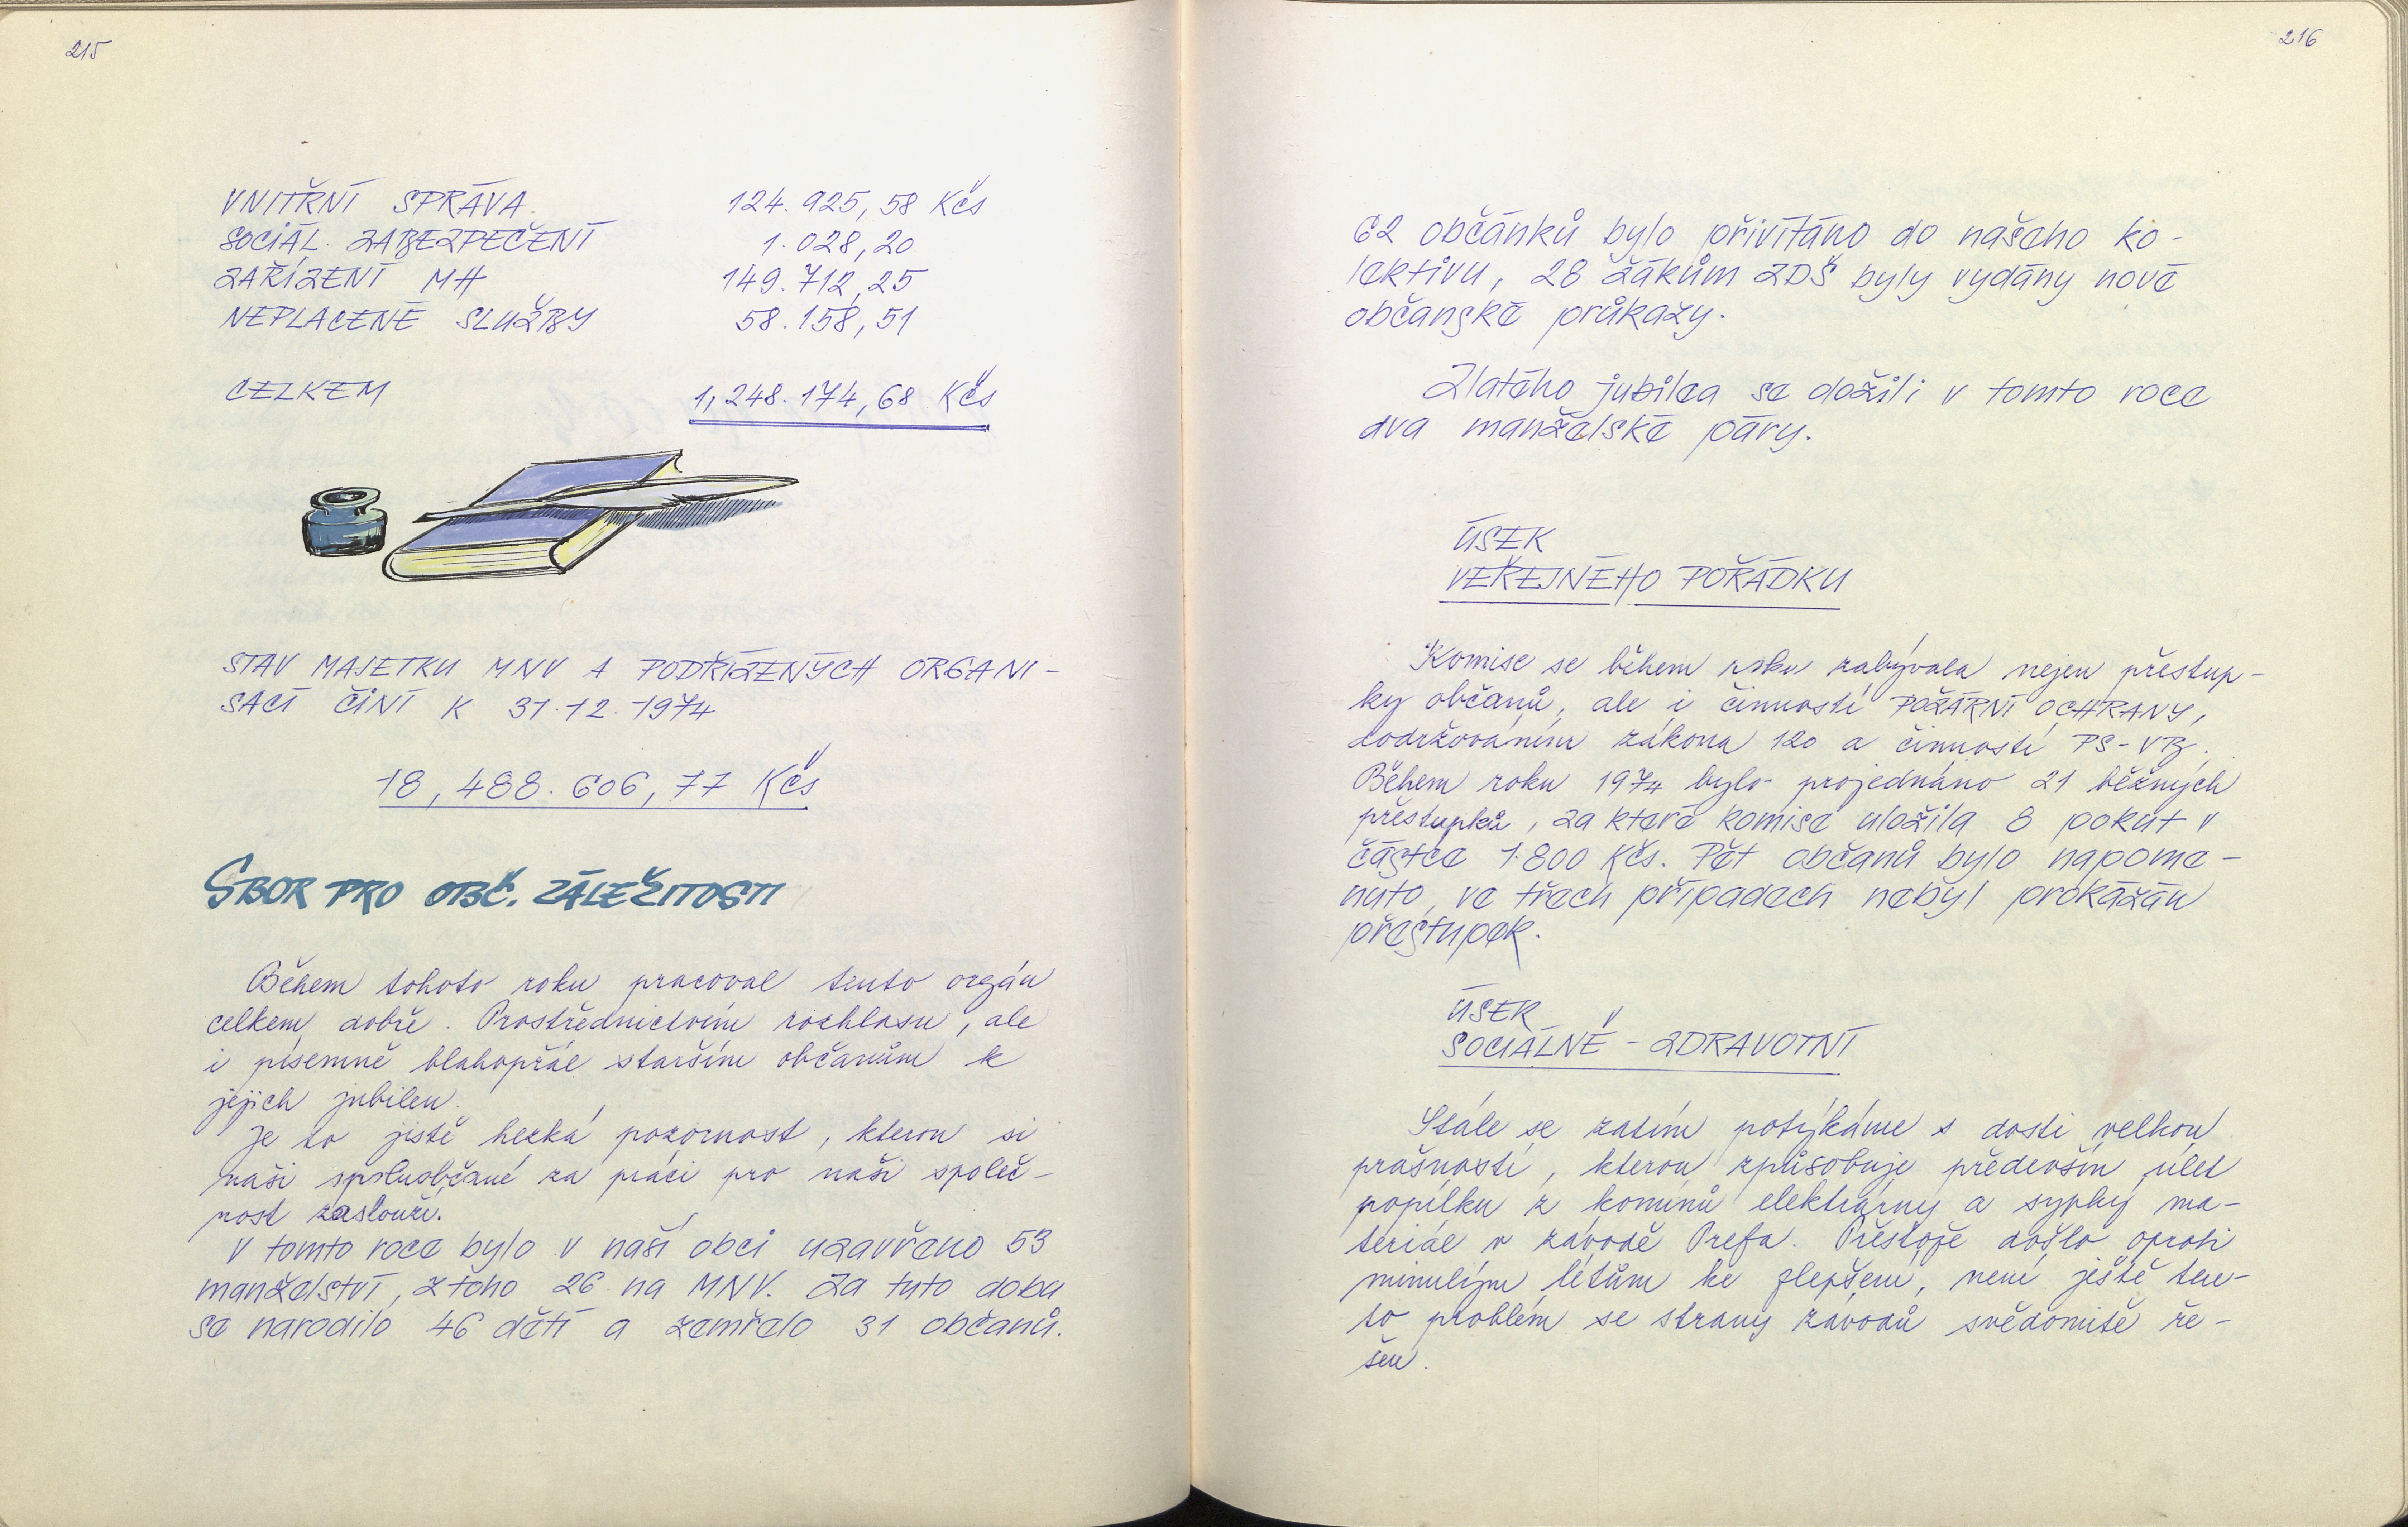 215
VNITŘNÍ SPRÁVA. 124.925,58 Kčs
SOCIÁL. ZABEZPEČENÍ 1.028,20
ZAŘÍZENÍ MH 149.712,25
NEPLACENÉ SLUŽBY 58.158,51
CELKEM 1,248.174,68 Kčs
STAV MAJETKU MNV A PODŘÍZENÝCH ORGANI-
SACÍ ČINÍ K 31.12.1974
18,488.606,77 Kčs
SBOR PRO OBČ. ZÁLEŽITOSTI
Během tohoto roku pracoval tento orgán
celkem dobře. Prostřednictvím rozhlasu, ale
i písemně blahopřál starším občanům k
jejich jubileu.
Je to jistě hezká pozornost, kterou si
naši spoluobčané za práci pro naši společ-
nost zaslouží.
V tomto roce bylo v naší obci uzavřeno 53
manželství, z toho 26 na MNV. Za tuto dobu
se narodilo 46 dětí a zemřelo 31 občanů.
216
62 občánků bylo přivítáno do našeho ko-
lektivu, 28 žákům ZDŠ byly vydány nové
občanské průkazy.
Zlatého jubilea se dožili v tomto roce
dva manželské páry.
ÚSEK
VEŘEJNÉHO POŘÁDKU
Komise se během roku zabývala nejen přestup-
ky občanů, ale i činností POŽÁRNÍ OCHRANY,
dodržováním zákona 120 a činností PS-VB.
Během roku 1974 bylo projednáno 21 běžných
přestupků, za které komise uložila 8 pokut v
částce 1.800 Kčs. Pět občanů bylo napome-
nuto, ve třech případech nebyl prokázán
přestupek.
ÚSEK
SOCIÁLNĚ - ZDRAVOTNÍ
Stále se zatím potýkáme s dosti velkou
prašností, kterou způsobuje především úlet
popílku z komínů elektrárny a sypký ma-
teriál v závodě Prefa. Přestože došlo oproti
minulým létům ke zlepšení, není ještě ten-
to problém se strany závodů svědomitě ře-
šen.